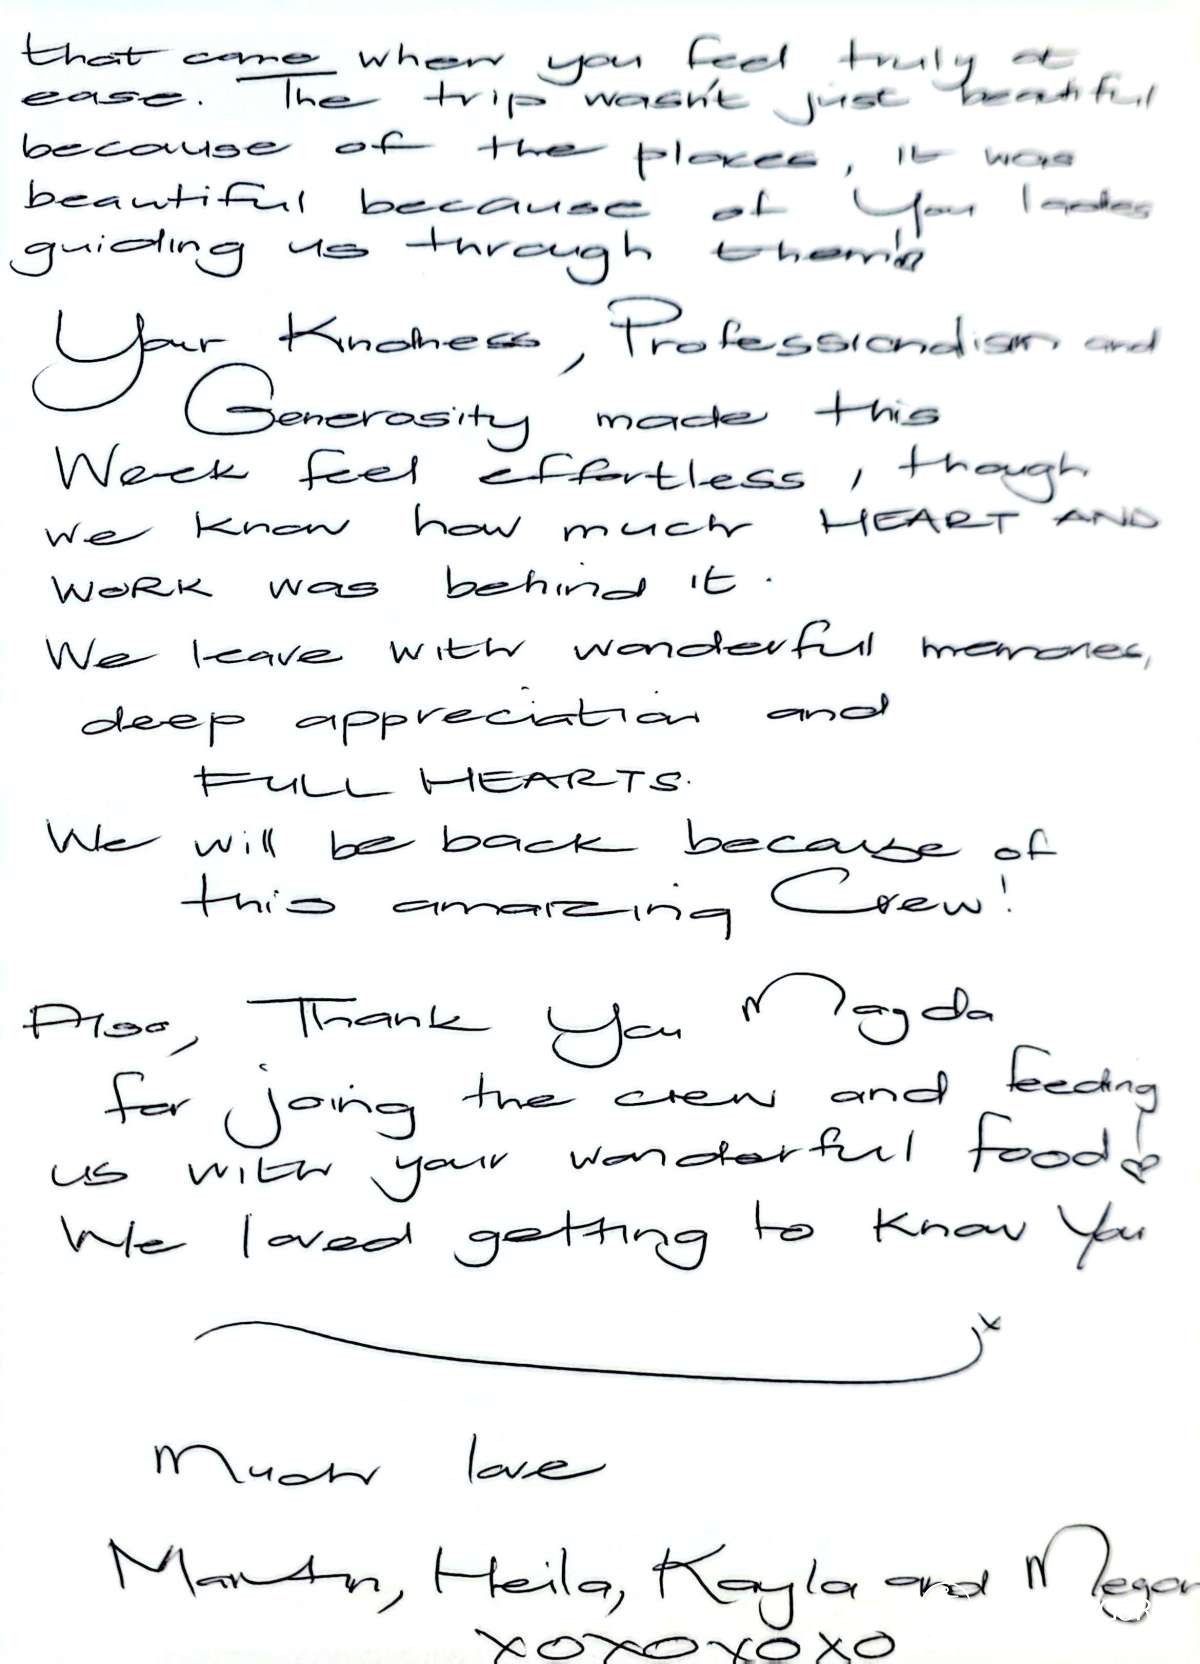 that came when you feel truly at
ease. The trip wasn't just beautiful
because of the places, it was
beautiful because of You ladies
guiding us through them!
Your Kindness, Professionalism and
Generosity made this
Week feel effortless, though
we know how much HEART AND
WORK was behind it.
We leave with wonderful memories,
deep appreciation and
FULL HEARTS.
We will be back because of
this amaizing Crew!
Also, Thank You Magda
for joing the crew and feeding
us with your wonderful food!
We loved getting to know You
x
Much love
Martin, Heila, Kayla and Megan
XOXOXOXO